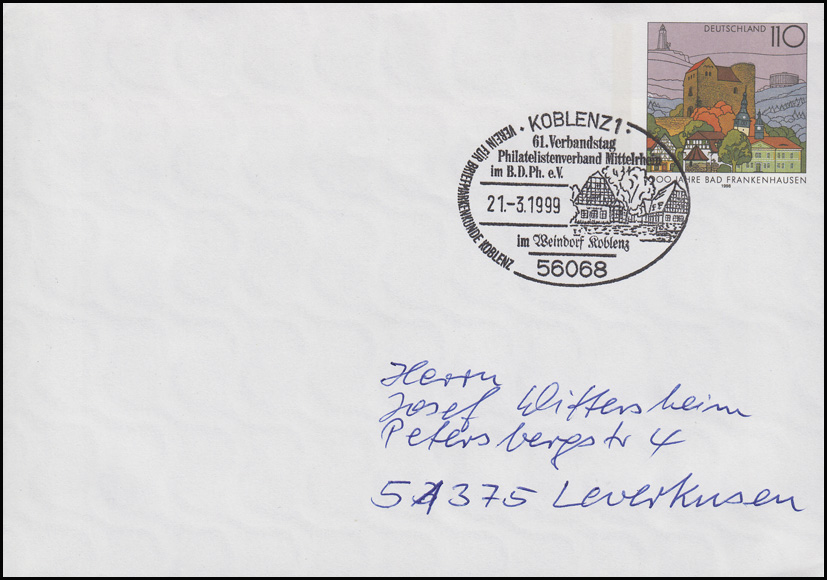 DEUTSCHLAND 110
JAHRE BAD FRANKENHAUSEN
1998
· KOBLENZ 1 ·
61. Verbandstag
Philatelistenverband Mittelrhein
im B.D.Ph. e.V.
21.-3.1999
im Weindorf Koblenz
56068
VEREIN FÜR BRIEFMARKENKUNDE KOBLENZ
Herrn
Josef Wittersheim
Petersbergstr 4
51375 Leverkusen